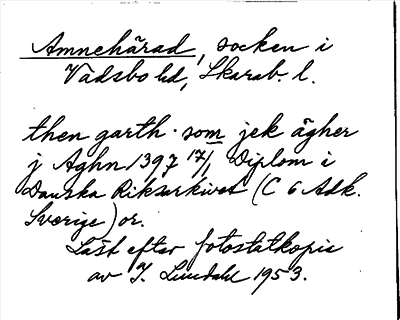 Amnehärad, socken i
Vadsbo hd, Skarab. l.
then garth. som jek ägher
j Aghn 1397 17/1 Diplom i
Danska Riksarkivet (C 6 Adk.
Sverige) or.
Läst efter fotostatkopia
av I. Lundahl 1953.